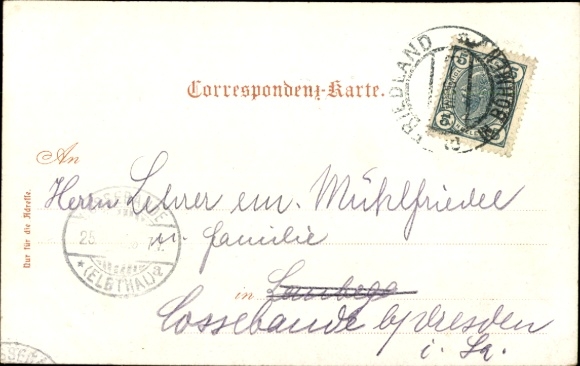 Correspondenz-Karte.
FRIEDLAND
BÖHMEN
5 5
An
Herrn Lehrer em. Mühlfriedel
u. familie
Nur für die Adresse.
25
* (ELBTHAL) a
in Laubega
Cossebaude b/Dresden
i. Sa.